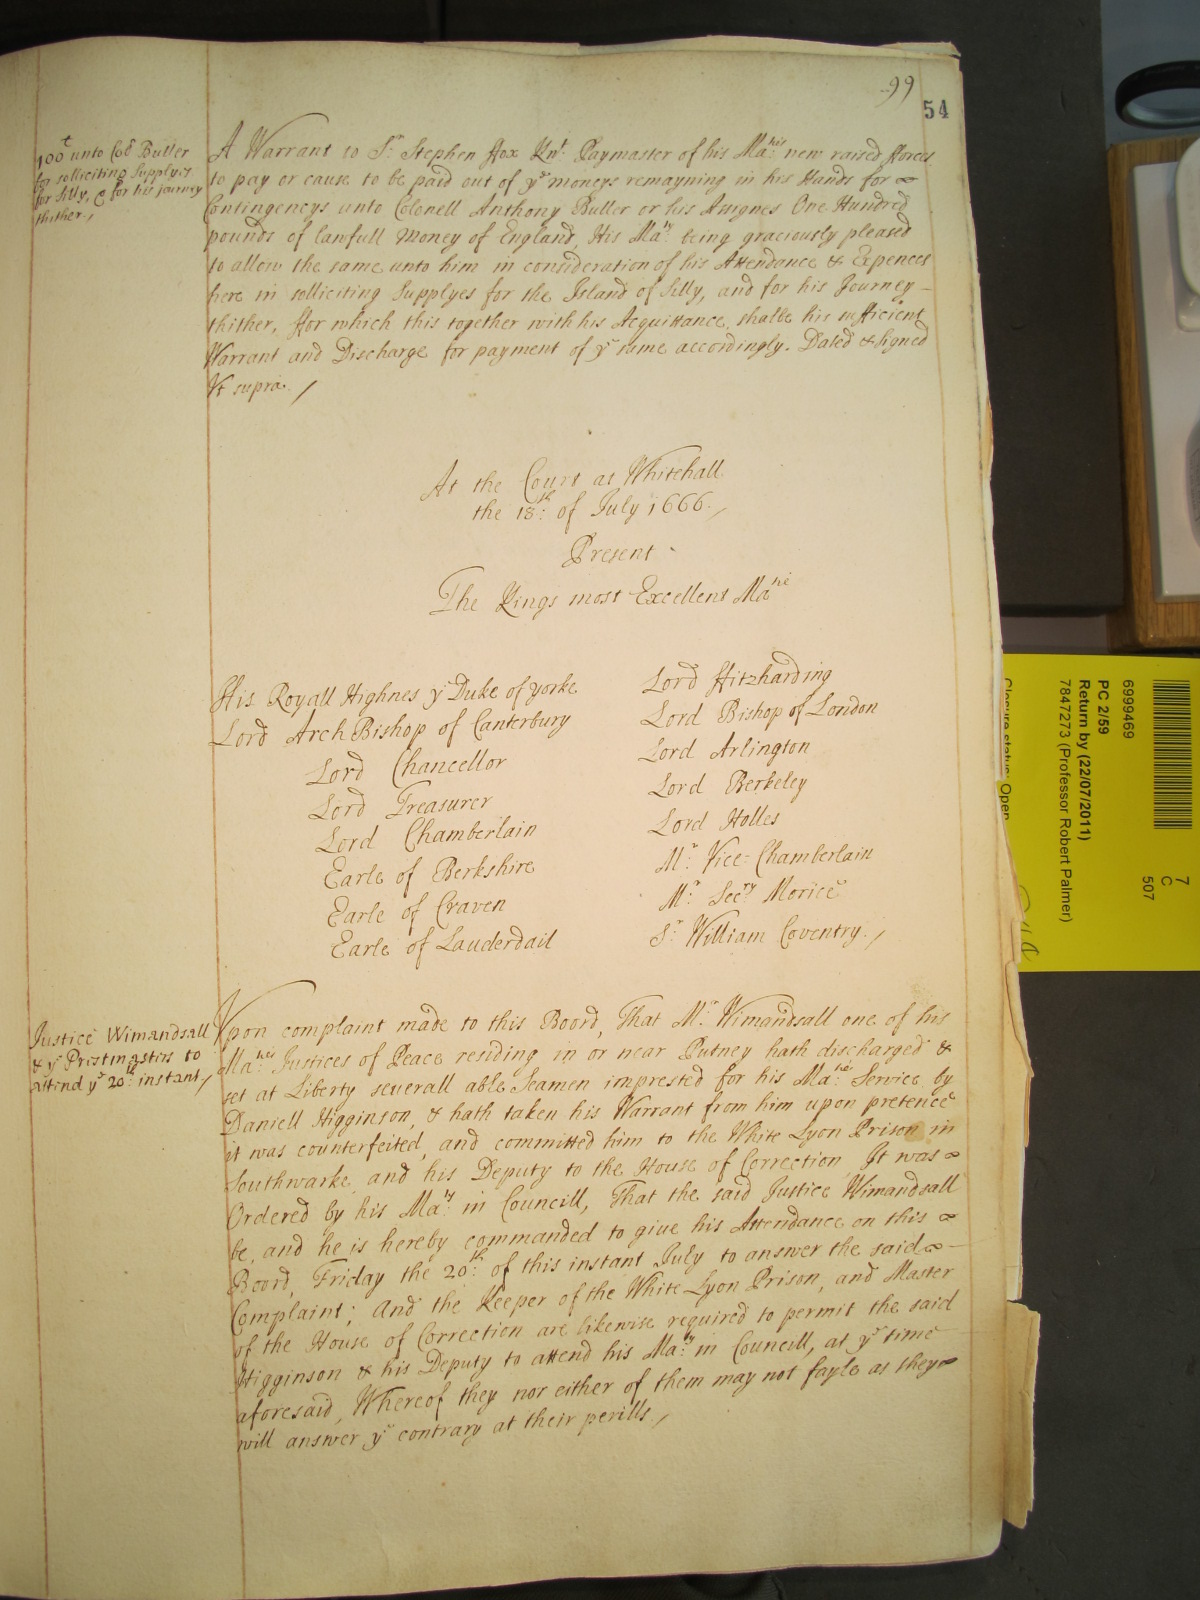 99
54
100£ unto Col Butler
for solliciting Supplyes
for Silly, & for his journey
thither./
A Warrant to Sr Stephen ffox Knt. Paymaster of his Mats new raised fforces
to pay or cause to be paid out of ye moneys remayning in his Hands for
Contingencys unto Colonell Anthony Butler or his Assignes One Hundred
pounds of lawfull Money of England, His Maty being graciously pleased
to allow the same unto him in consideration of his Attendance & Expences
here in solliciting Supplyes for the Island of Silly, and for his Journey
thither, ffor which this together with his Acquittance, shalbe his sufficient
Warrant and Discharge for payment of ye same accordingly. Dated & Signed
Vt supra./
At the Court at Whitehall
the 18th: of July 1666./
Present
The Kings most Excellent Matie
His Royall Highnes ye Duke of Yorke
Lord Arch Bishop of Canterbury
Lord Chancellor
Lord Treasurer
Lord Chamberlain
Earle of Berkshire
Earle of Craven
Earle of Lauderdail
Lord Fitzharding
Lord Bishop of London
Lord Arlington
Lord Berkeley
Lord Holles
Mr: Vice-Chamberlain
Mr: Secry Morice
Sr: William Coventry./
Justice Wimandsall
& ye Prestmasters to
attend ye 20th instant/
Vpon complaint made to this Boord, That Mr: Wimandsall one of his
Maties Justices of Peace residing in or near Putney hath discharged &
set at Liberty severall able Seamen imprested for his Maties Service by
Daniell Higginson, & hath taken his Warrant from him upon pretence
it was counterfeited, and committed him to the White Lyon Prison in
Southwarke and his Deputy to the House of Correction, It was
Ordered by his Maty in Councill, That the said Justice Wimandsall
be, and he is hereby commanded to give his Attendance on this
Boord, Friday the 20th: of this instant July to answer the said
Complaint; And the Keeper of the White Lyon Prison, and Master
of the House of Correction are likewise required to permit the said
Higginson & his Deputy to attend his Maty in Councill, at ye time
aforesaid, Whereof they nor either of them may not fayle as they
will answer ye contrary at their perills./
6999469
PC 2/59
Return by (22/07/2011)
7847273 (Professor Robert Palmer)
Closure status: Open
7
C
507